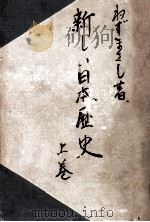 ねずまさし著
新しい日本歴史
上巻